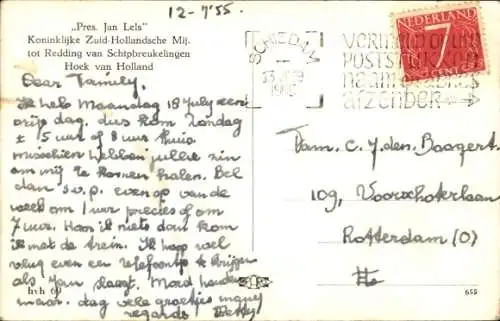 12-7'55.
„Pres. Jan Lels"
Koninklijke Zuid-Hollandsche Mij.
tot Redding van Schipbreukelingen
Hoek van Holland
NEDERLAND
7
CENT
SCHIEDAM
VERMELD
POSTSTUKKEN
AFZENDER
Dear Family.
Ik heb Maandag 18 July een
vrije dag, dus kom Zondag
± 5 uur of 8 uur thuis
misschien hebben jullie zin
om mij te komen halen. Bel
dan s.v.p. even op van de
week om 1 uur precies of om
7 uur. Hoor ik niets dan kom
ik met de trein. Ik hoop wel
vlug even een telefoontje te krijgen
als Jan slaagt. Moed houden
maar. dag vele groetjes many
regards Betty
Fam. C. J. den Boogert.
109, Voorschoterlaan
Rotterdam (O)
hvh 69
655